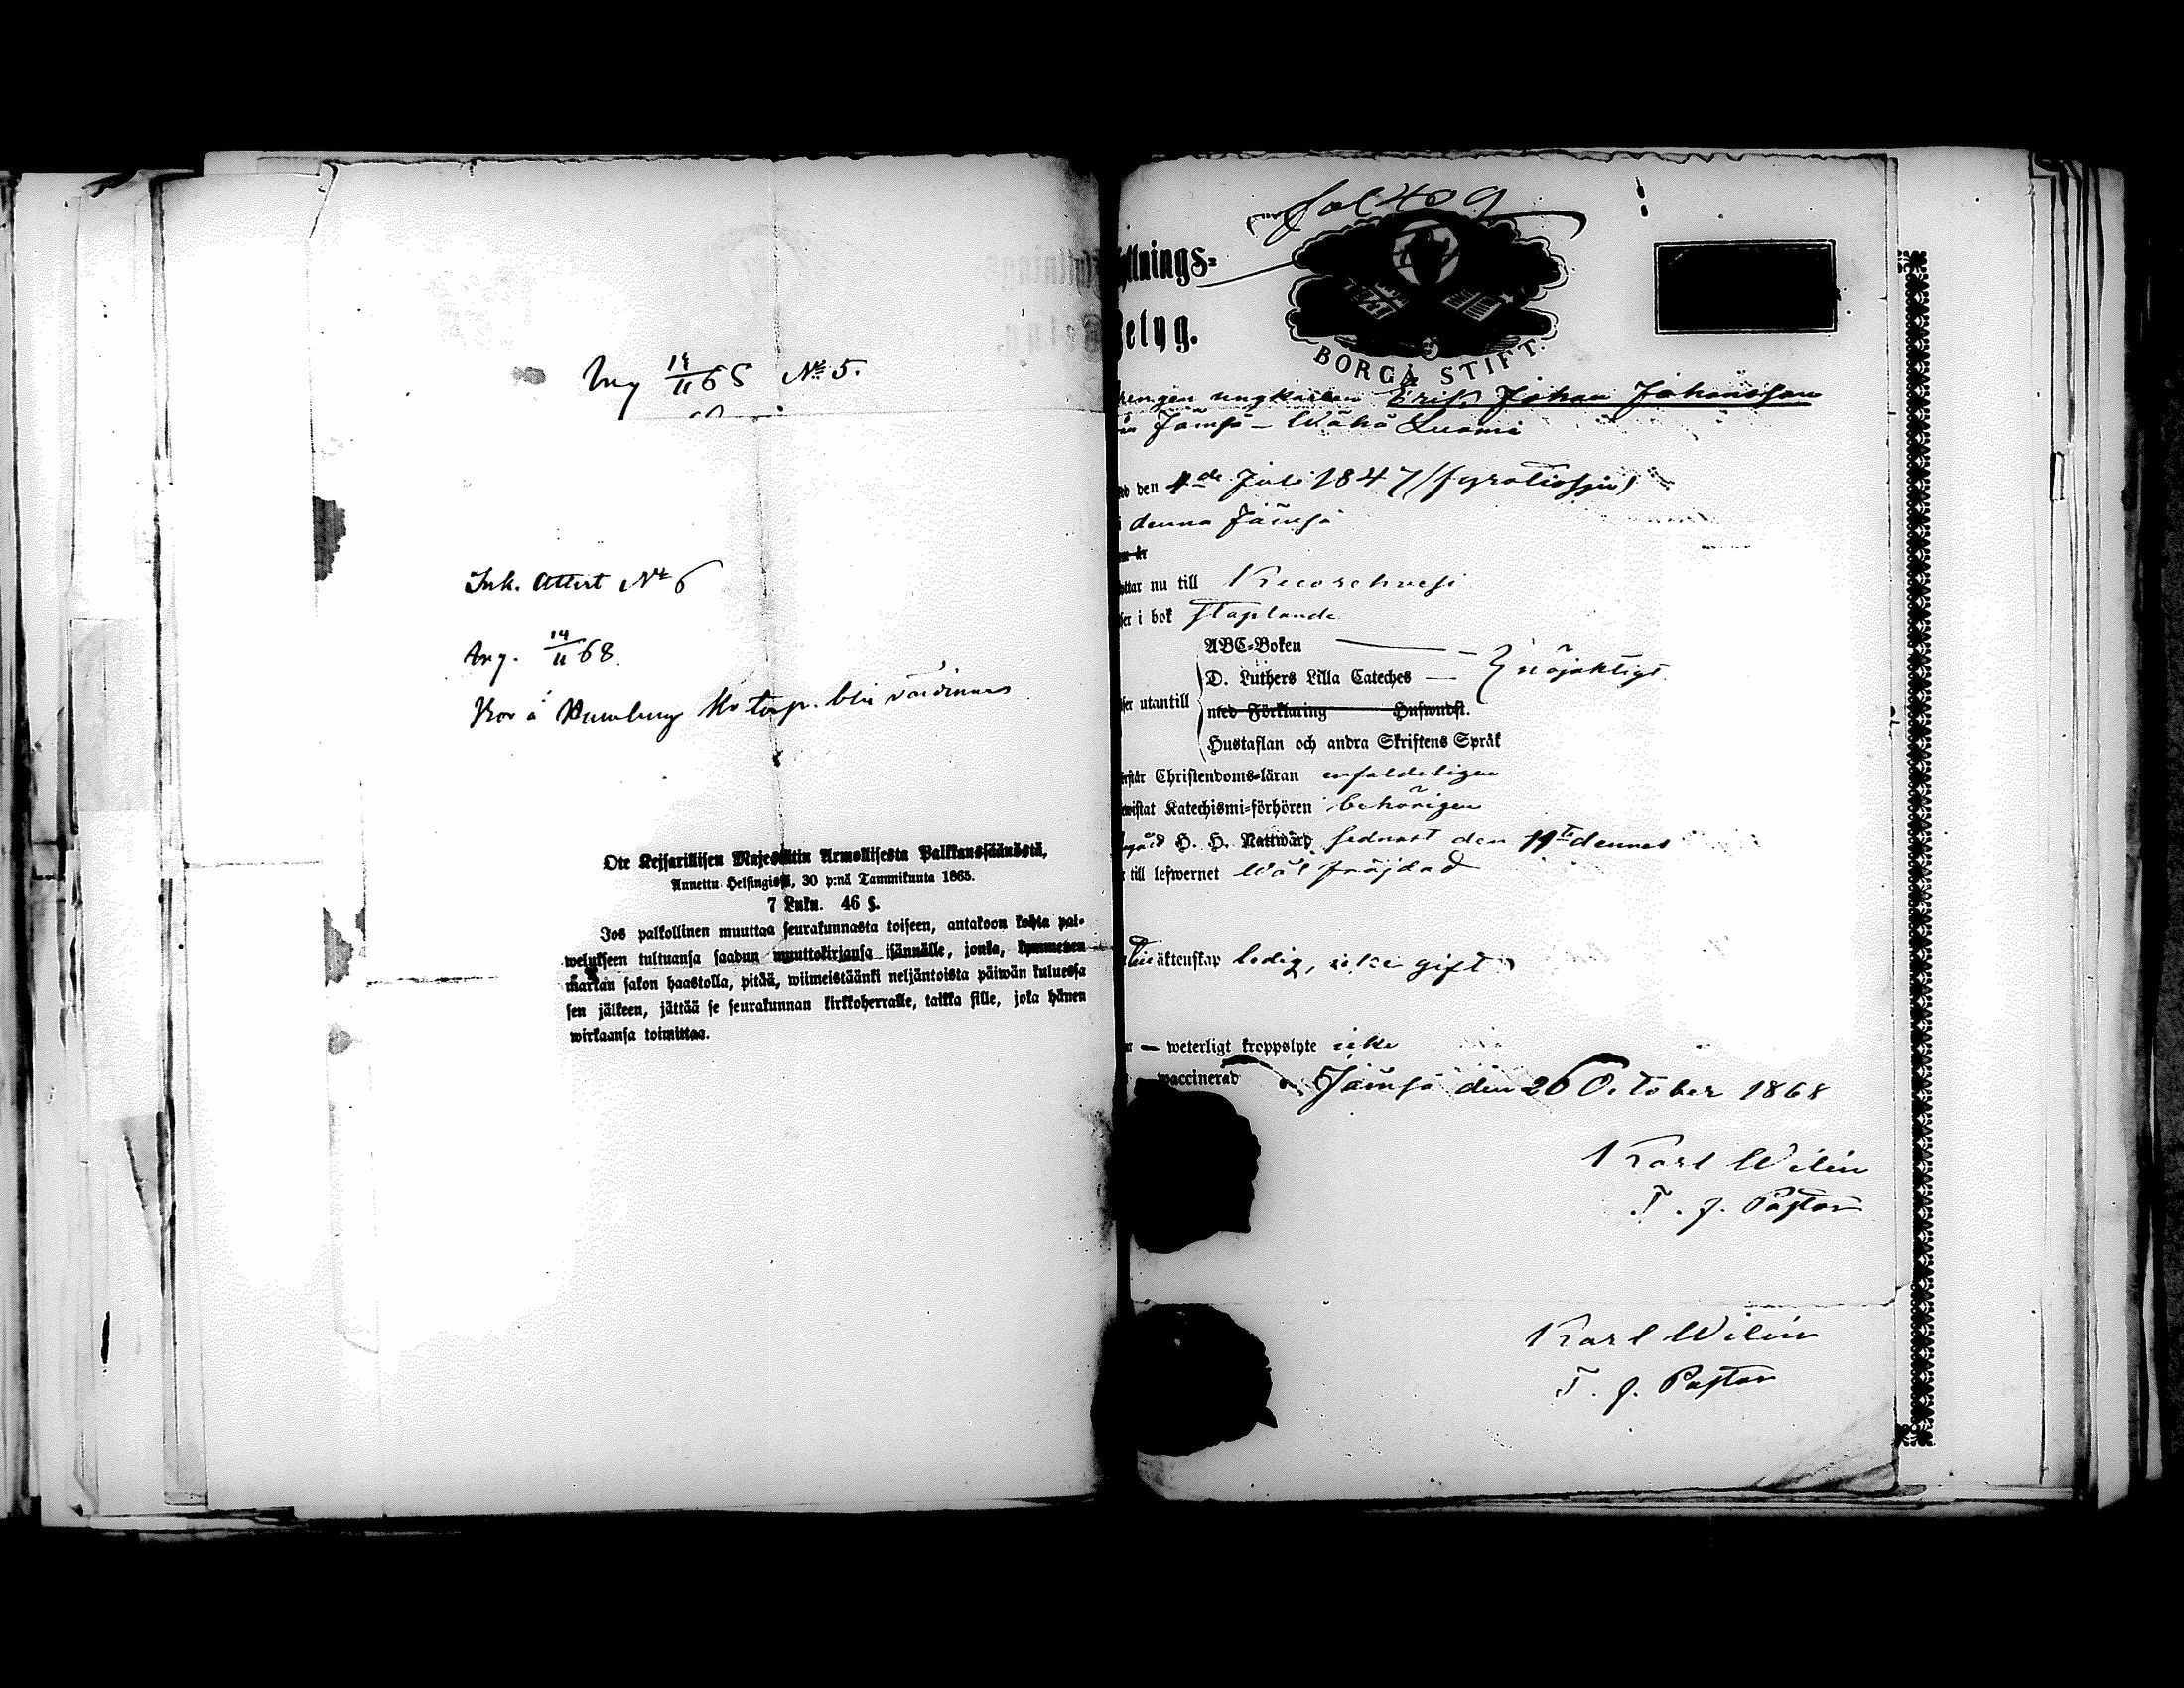 Ang 14/11 68 No 5.
Ink. Attest No 6
Ang. 14/11 68.
Ote Kejsarillisen Majestätin Armollisesta Palkkaussäänöstä,
Annettu Helsingissä, 30 p:nä Tammikuuta 1865.
7 Luku. 46 §.
Jos palkollinen muuttaa seurakunnasta toiseen, antakoon kohta pal-
welukseen tultuansa saadun muuttokirjansa isännälle, jonka, kymmenen
markan sakon haastolla, pitää, wiimeistäänki neljäntoista päiwän kuluessa
sen jälkeen, jättää se seurakunnan kirkkoherralle, taikka sille, joka hänen
wirkaansa toimittaa.
fol 409
ttnings-
etyg.
BORGÅ STIFT.
rengen ungkarlen Erik Johan Johansson
ån Jämsä – Wähä Luomi
dd den 4de Juli 1847 (fyratiosju)
i denna Jämsä
ttar nu till Kuorehvesi
ser i bok staplande
ABC-Boken
D. Luthers Lilla Cateches — nöjaktigt
ser utantill
med Förklaring Huswudst.
Hustaflan och andra Skriftens Språk
rstår Christendoms-läran enfaldeligen
ewistat Katechismi-förhören behörigen
gått H. H. Nattward sednast den 11te dennes
r till lefwernet Wäl fräjdad
äktenskap ledig, icke gift
— weterligt kroppslyte icke
waccinerad
Jämsä den 26 October 1868
Karl Wilén
T. f. Pastor
Karl Wilén
T. f. Pastor